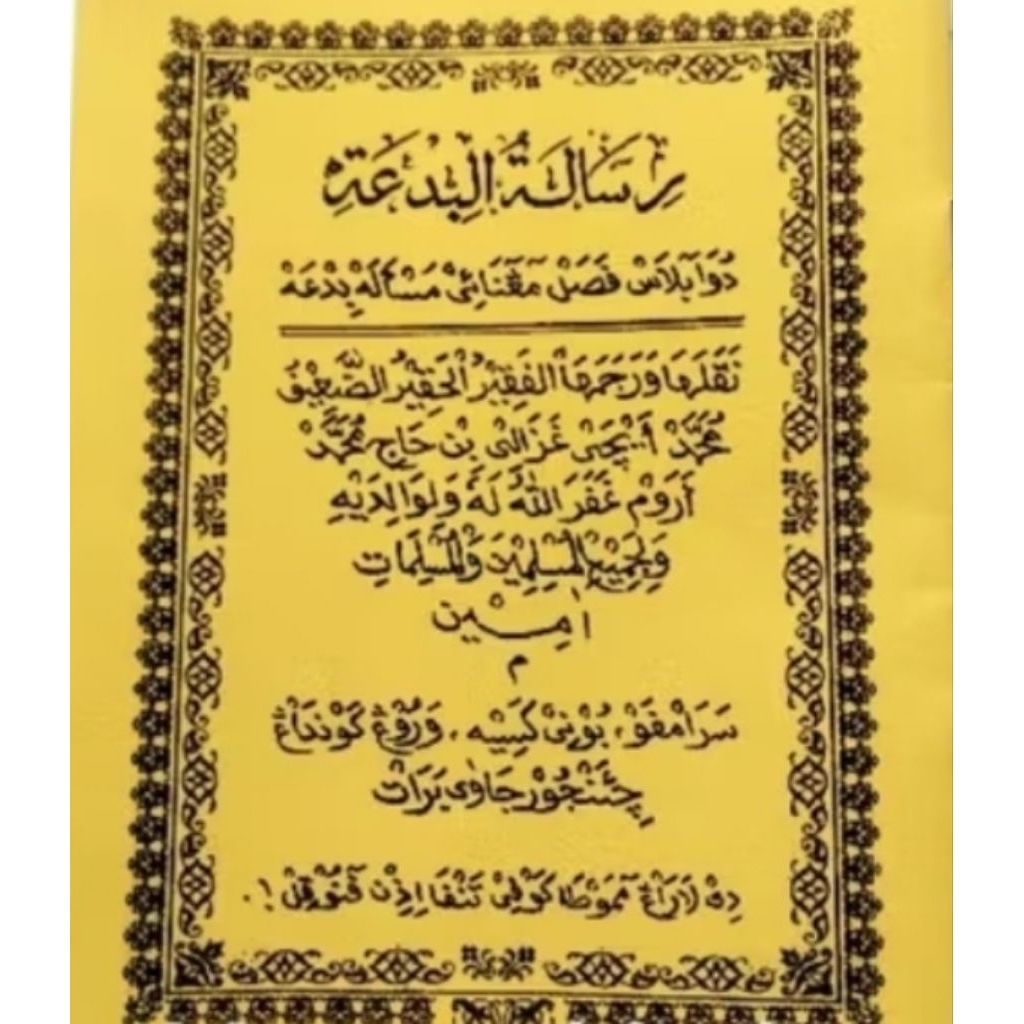 رِسَالَةُ الْبِدْعَةِ
دُوَا بْلَاسْ فَصَلْ مڠنَائِىْ مَسْأَلَهْ بِدْعَهْ
نَقَلَهَا وَتَرْجَمَهَا الْفَقِيْرُ الْحَقِيْرُ الضَّعِيْفُ
مُحَمَّدْ يَحْيَى غَزَالِىْ بِنْ حَاجِ مُحَمَّدْ
أَرَوْمْ غَفَرَ اللهُ لَهُ وَلِوَالِدَيْهِ
وَلِجَمِيْعِ الْمُسْلِمِيْنَ وَالْمُسْلِمَاتِ
اٰمِيْن
م
سَرَامْفَوْ، بُوْنِىْ كَسِيْه، وَرُوْڠْ كَوْنْدَاڠْ
چِئَنْجُوْرْ جَاوٰى بَرَاتْ
دِهْ لَارَاڠْ مموطَا كَوْلِىْ تَنْفَا اِذِنْ فنوقِلْ !.